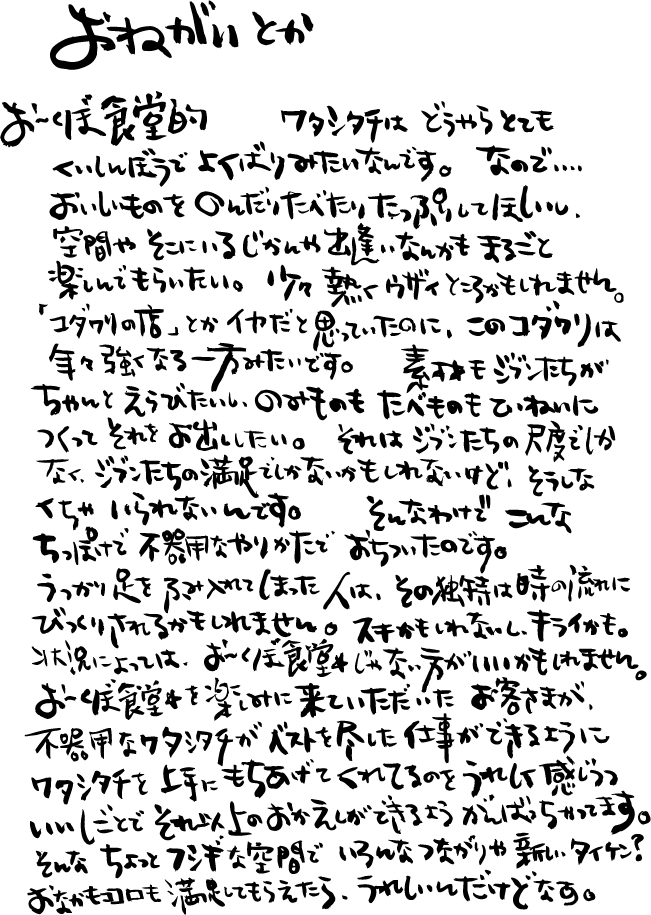 おねがいとか
お〜くぼ食堂的　ワタシタチは どうやらとても
くいしんぼうで よくばりみたいなんです。 なので....
おいしいものを のんだりたべたりたっぷりしてほしいし、
空間や そこにいるじかんや 出逢いなんかも まるごと
楽しんでもらいたい。 少々 熱くウザイところかもしれません。
「コダワリの店」とか イヤだと思っていたのに、このコダワリは
年々強くなる一方みたいです。 素材もジブンたちが
ちゃんと えらびたいし、のみものも たべものも ていねいに
つくって それを お出ししたい。 それは ジブンたちの 尺度でしか
なく、ジブンたちの満足でしかないかもしれないけど、そうしな
くちゃ いられないんです。 そんなわけで こんな
ちっぽけで 不器用なやりかたで おちついたのです。
うっかり足を ふみ入れてしまった 人は、その独特な時の流れに
びっくりされるかもしれません。スキかもしれないし、キライかも。
状況によっては、お〜くぼ食堂*じゃない方がいいかもしれません。
お〜くぼ食堂*を楽しみに 来ていただいた お客さまが、
不器用なワタシタチが ベストを尽した 仕事ができるように
ワタシタチを 上手に もちあげて くれてるのを うれしく 感じつつ
いいしごとで それ以上の おかえしができるよう がんばっちゃってます。
そんな ちょっと フシギな空間で いろんなつながりや 新しいタイケン?
おなかもココロも 満足してもらえたら、うれしいんだけどなす。